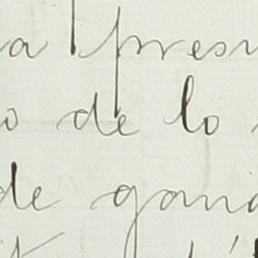 a presu
o de lo
de gana